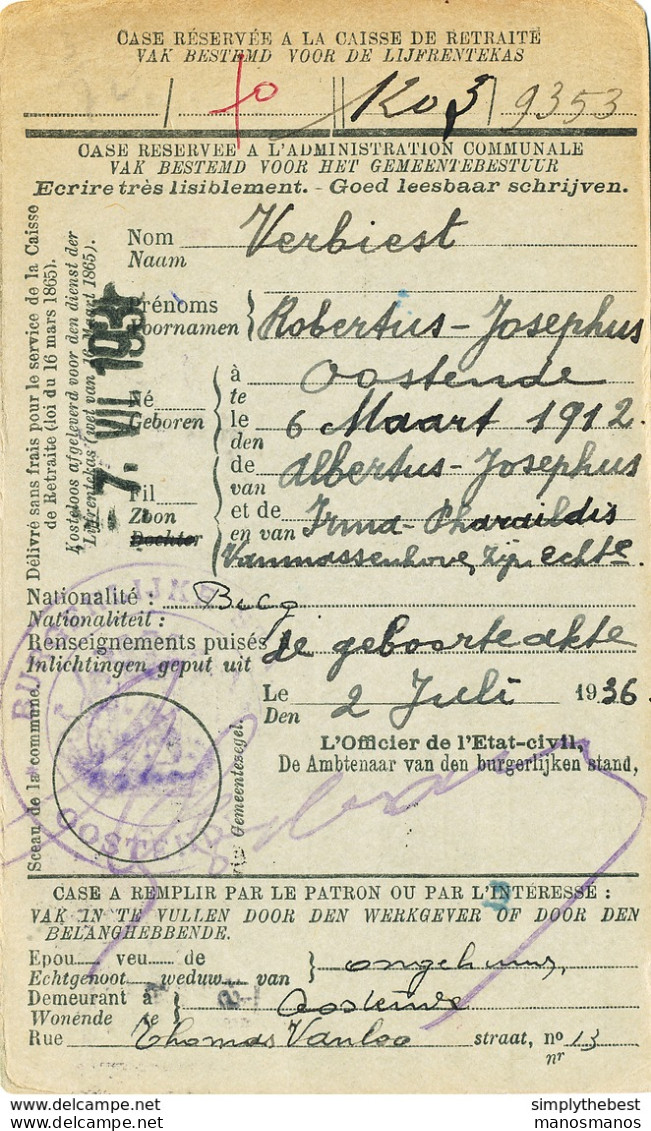 CASE RÉSERVÉE A LA CAISSE DE RETRAITE
VAK BESTEMD VOOR DE LIJFRENTEKAS
9353
CASE RESERVEE A L'ADMINISTRATION COMMUNALE
VAK BESTEMD VOOR HET GEMEENTEBESTUUR
Ecrire très lisiblement. - Goed leesbaar schrijven.
Délivré sans frais pour le service de la Caisse
de Retraite (loi du 16 mars 1865).
Kosteloos afgeleverd voor den dienst der
Lijfrentekas (wet van 16 Maart 1865).
7. VII 193
Nom Verbiest
Naam
Prénoms
Voornamen } Robertus-Josephus
Né à Oostende
Geboren te
le 6 Maart 1912.
den
Fil de Albertus-Josephus
Zoon van
Dochter et de Irma-Pharaildis
en van
Vanmassenhove, zijn echte.
Nationalité : Belg
Nationaliteit :
Renseignements puisés à de geboorteakte
Inlichtingen geput uit
Le 2 Juli 1936.
Den
L'Officier de l'Etat-civil,
De Ambtenaar van den burgerlijken stand,
Sceau de la commune.
Gemeentezegel.
OOSTENDE
CASE A REMPLIR PAR LE PATRON OU PAR L'INTÉRESSÉ :
VAK IN TE VULLEN DOOR DEN WERKGEVER OF DOOR DEN
BELANGHEBBENDE.
Epou veu de
Echtgenoot weduw van } ongehuwd
Demeurant à
Wonende te } Oostende
Rue Thomas Vanloo straat, nº 13
nr
simplythebest
manosmanos